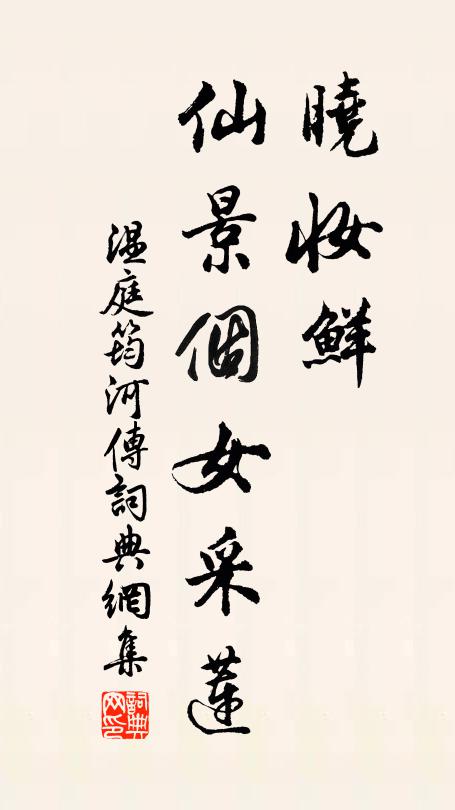 曉妝鮮
仙景個女采蓮
溫庭筠河傳詞典網集
詞典网印